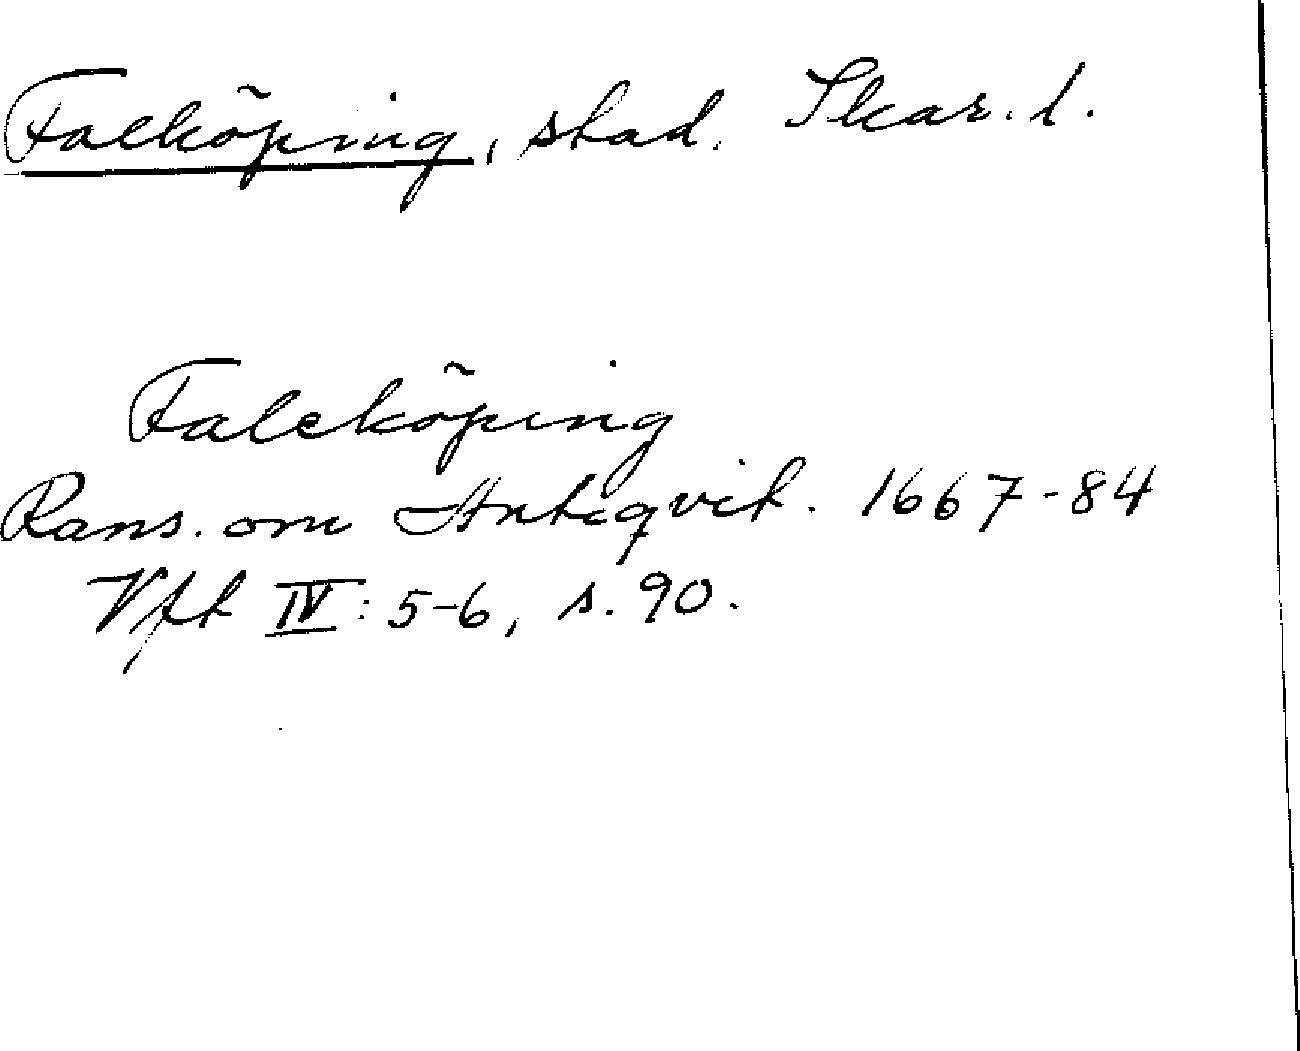 Falköping, stad. Skar. l.
Falcköping
Rans. om Antiqvit. 1667-84
Vft IV: 5-6, s. 90.